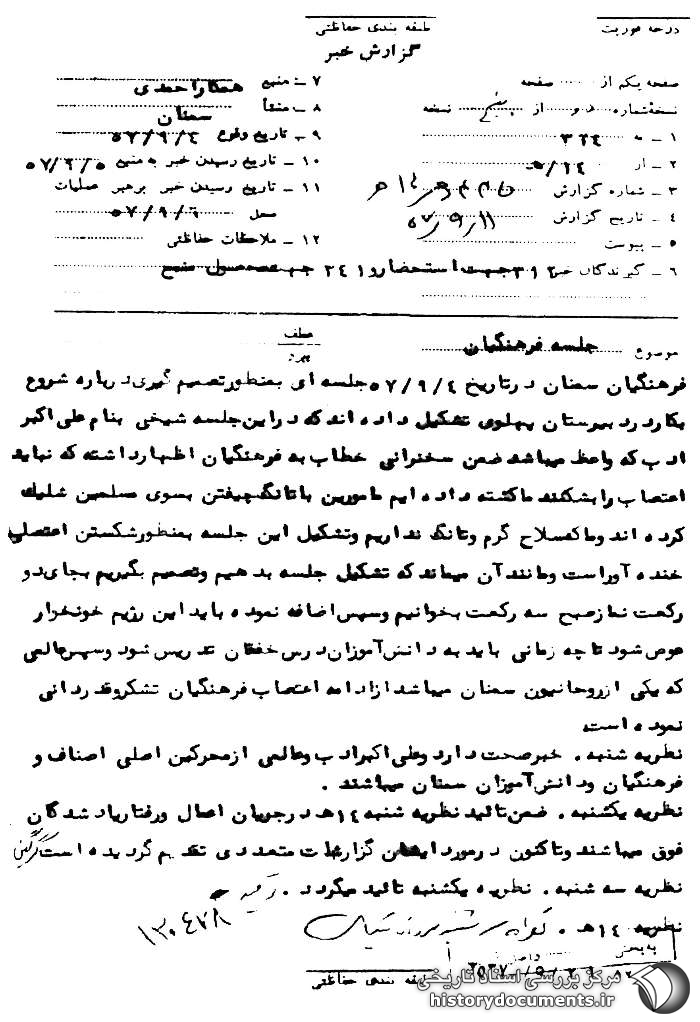 درجه فوریت
طبقه بندی حفاظتی
گزارش خبر
صفحه یکم از صفحه
نسخه شماره دو از پنج نسخه
۱ – به ۳۲۴
۲ – از ۱۴/ه
۳ – شماره گزارش
۴ – تاریخ گزارش ۵۷/۹/۱۱
۵ – پیوست
۶ – گیرندگان خبر ۳۱۲ جهت استحضار و ۲۴۱ جهت
۷ – منبع همکار احمدی
۸ – منشأ سمنان
۹ – تاریخ وقوع ۵۷/۹/۴
۱۰ – تاریخ رسیدن خبر به منبع ۵۷/۹/۵
۱۱ – تاریخ رسیدن خبر برهبر عملیات
محل ۵۷/۹/۶
۱۲ – ملاحظات حفاظتی
موضوع جلسه فرهنگیان
عطف
پیرو
فرهنگیان سمنان در تاریخ ۵۷/۹/۴ جلسه ای بمنظور تصمیم گیری درباره شروع
بکار در دبیرستان پهلوی تشکیل داده اند که در این جلسه شیخی بنام علی اکبر
ادب که واعظ میباشد ضمن سخنرانی خطاب به فرهنگیان اظهار داشته که نباید
اعتصاب را بشکنند ما کشته داده ایم مامورین با تانگ چیفتن بسوی مسلمین شلیک
کرده اند و ما که سلاح گرم و تانگ نداریم و تشکیل این جلسه بمنظور شکستن اعتصاب
خنده آور است و مانند آن میماند که تشکیل جلسه بدهیم و تصمیم بگیریم بجای دو
رکعت نماز صبح سه رکعت بخوانیم و سپس اضافه نموده باید این رژیم خونخوار
عوض شود تا چه زمانی باید به دانش آموزان درس خفقان تدریس شود و سپس عالمی
که یکی از روحانیون سمنان میباشد از ادامه اعتصاب فرهنگیان تشکر و قدردانی
نموده است.
نظریه شنبه . خبر صحت دارد و علی اکبر ادب و عالمی از محرکین اصلی اصناف و
فرهنگیان و دانش آموزان سمنان میباشند .
نظریه یکشنبه . ضمن تائید نظریه شنبه ۱۴ ه در جریان اعمال و رفتار یاد شدگان
فوق میباشند و تاکنون در مورد گزارشات متعددی تقدیم گردیده است
نظریه سه شنبه . نظریه یکشنبه تائید میگردد .
۱۳۰۴۷۸
نظریه ۱۴ ه .
به بخش
طبقه بندی حفاظتی
مرکز بررسی اسناد تاریخی
historydocuments.ir